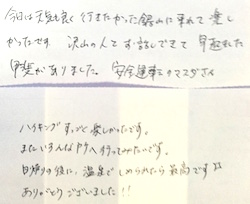 今日は天気も良く行きたかった銀山に来れて楽し
かったです 沢山の人とお話しできて早起きした
甲斐がありました。安全運転のマスダさん
ハイキングすっごく楽しかったです。
またいろんなヤマへ行ってみたいです。
日帰りの後に、温泉でしめられたら最高です
ありがとうございました!!